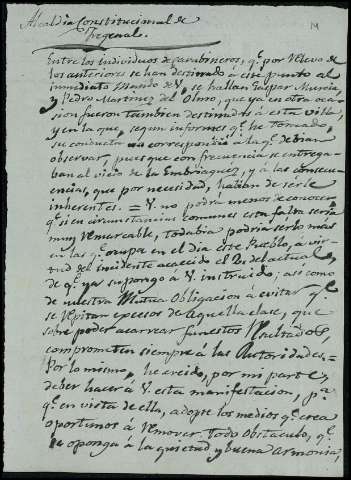 Alcaldia Constitucional de
Fregenal.
Entre los individuos de carabineros, q.e por relevo de
los anteriores se han destinado á este punto al
inmediato Mando de V, se hallan Gaspar Murcia,
y Pedro Martinez del Olmo, que ya en otra oca-
sion fueron tambien destinados á esta villa,
y en la que, segun informes q.e he tomado,
su conducta no correspondia á la q.e debian
observar, pues que con frecuencia se entrega-
ban al vicio de la Embriaguez, y á las consecu-
encias, que por necesidad, habian de serle
inherentes. = V. no podrá menos de conocer,
q.e si en circunstancias comunes esta falta seria
muy remarcable, todabia podria serlo mas
en las q.e ocupa en el dia este Pueblo, á vir-
tud del incidente acaecido el 2, del actual,
de q.e ya supongo á V. instruido; asi como
de nuestra Mutua Obligacion á evitar q.e
se repitan excesos de aquella clase, que
sobre poder acarrear funestos Resultados,
comprometen siempre á las Autoridades. =
Por lo mismo, he creido, por mi parte,
deber hacer á V. esta manifestacion, p.a
q.e en vista de ella, adopte los medios q.e crea
oportunos á remover todo obstaculo, q.e
se oponga á la quietud y buena armonia,